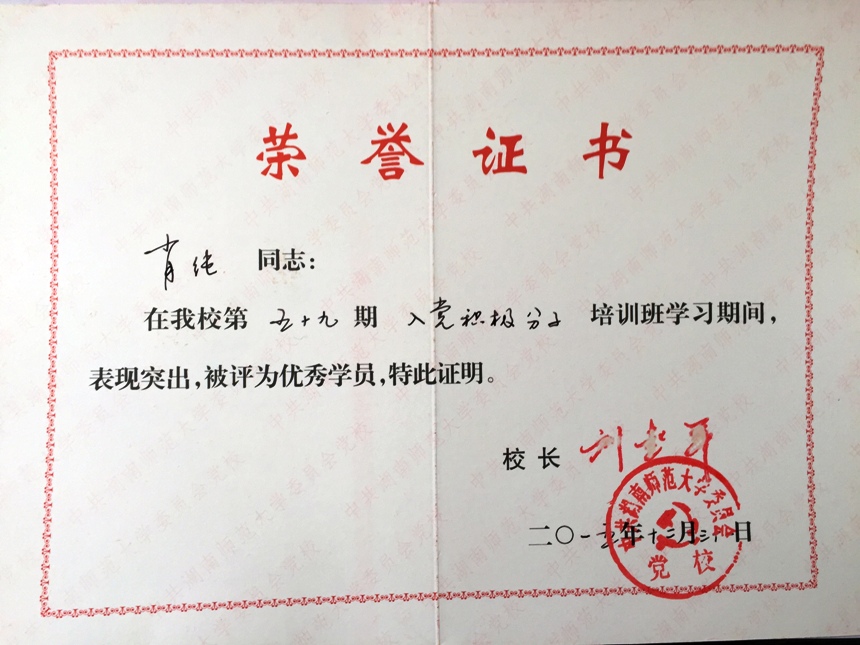 荣誉证书
肖纯 同志：
在我校第 五十九 期 入党积极分子 培训班学习期间，
表现突出，被评为优秀学员，特此证明。
校 长
中共湖南师范大学委员会
党校
二〇一五年十二月三十日